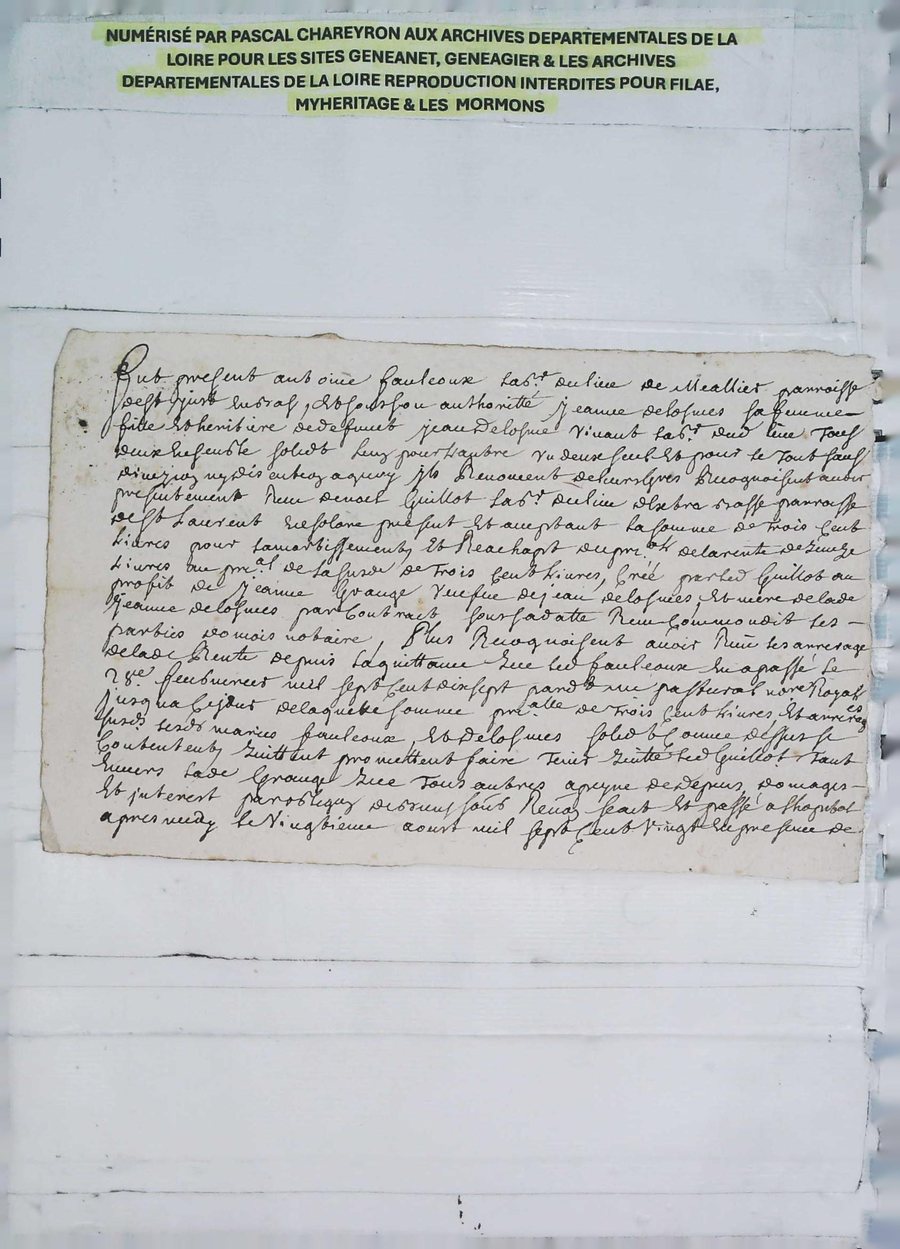 NUMÉRISÉ PAR PASCAL CHAREYRON AUX ARCHIVES DEPARTEMENTALES DE LA
LOIRE POUR LES SITES GENEANET, GENEAGIER & LES ARCHIVES
DEPARTEMENTALES DE LA LOIRE REPRODUCTION INTERDITES POUR FILAE,
MYHERITAGE & LES MORMONS
fut present antoine fauleoux lab.r du lieu de Meallier parroisse
de St just , Et sous son authoritté jeanne delosmes sa femme
fille et heritière de defunt jean Delosme vivant lab.r dud lieu Tous
deux Ensemble solid.t Lung pour Lautre un deux seul Et pour le Tout sans
Renoncent Recognoissent avoir
presentement Receu de noel Guillot lab.r du lieu parroisse
de St Laurent present Et acceptant La somme de Trois Cent
Livres pour Et Reachapt du pri.al de la rente de quinze
Livres au pri.al de la de Trois Cent Livres, Créé par led Guillot au
profit de jeanne Grange veufve de jean delosmes, Et mère de lade
jeanne delosmes par Contract
parties notaire, Plus Recognoissent avoir Receu les arrerage
de lade Rente depuis la quittance que led fauleoux En a passé le
mil sept Cent dix sept nore Royal
jusqua Cejour de laquelle somme pri.alle de Trois Cent Livres, Et arrerages
lesds mariés fauleoux Et Delosmes solid.t Comme dessus se
Contentent, quittent promettent faire Tenir quitte led Guillot Tant
Envers lade Grange que Tous autres a peyne de Depens domages
Et interest par obligez sous Renog. fait Et passé a
apres midy le Vingtieme aoust mil sept Cent Vingt En presence de